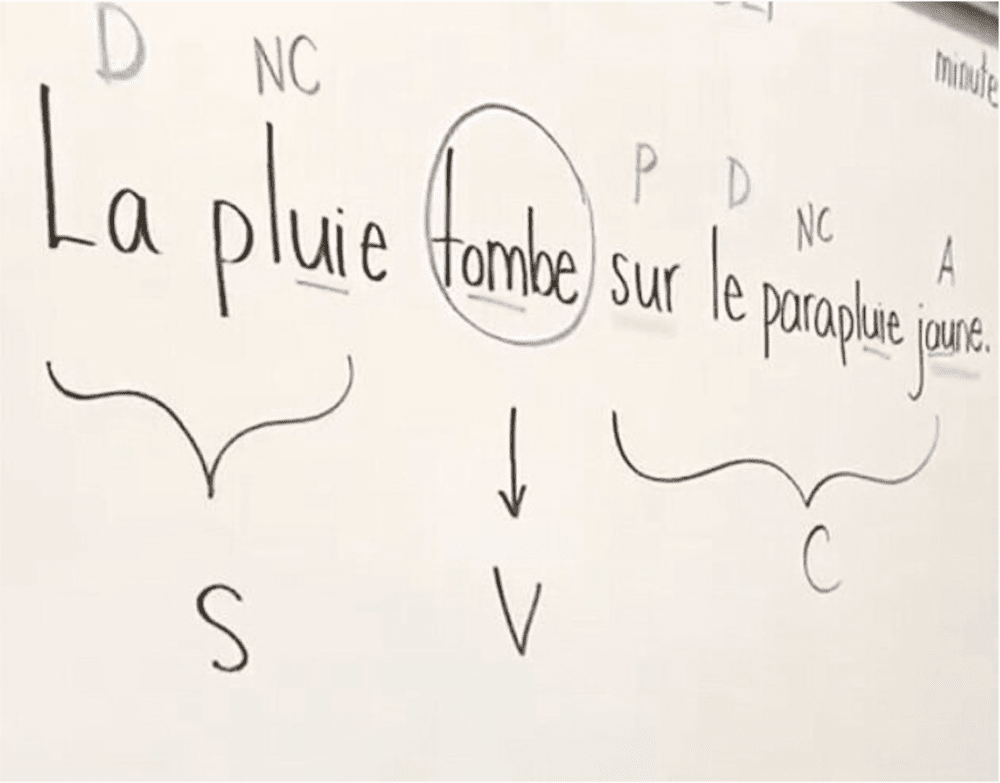 minute
D NC P D NC A
La pluie tombe sur le parapluie jaune.
S V C